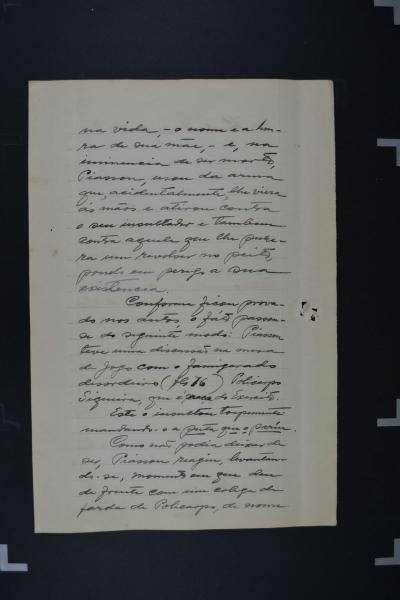 na vida, - o nome e a hon-
ra de sua mãe, - e, na
imminencia de ser morto,
Piasson, usou da arma
que, acidentalmente, lhe viera
ás mãos e atirou contra
o seu insultador e tambem
contra aquele que lhe puze-
ra um revolver no peito,
pondo em perigo a sua
existencia.
Conforme ficou prova-
do nos autos o fáto passou-
se do seguinte modo: Piasson
teve uma discussão na mesa
de jogo com o famigerado
disordeiro (fls 76) Policarpo
Siqueira, que é do Exercito.
Este o insultou torpemente
mandando-o a puta que o pariu.
Como não podia deixar de
ser, Piasson reagiu, levantan-
do-se, momento em que deu
de frente com um colega de
farda de Policarpo, de nome